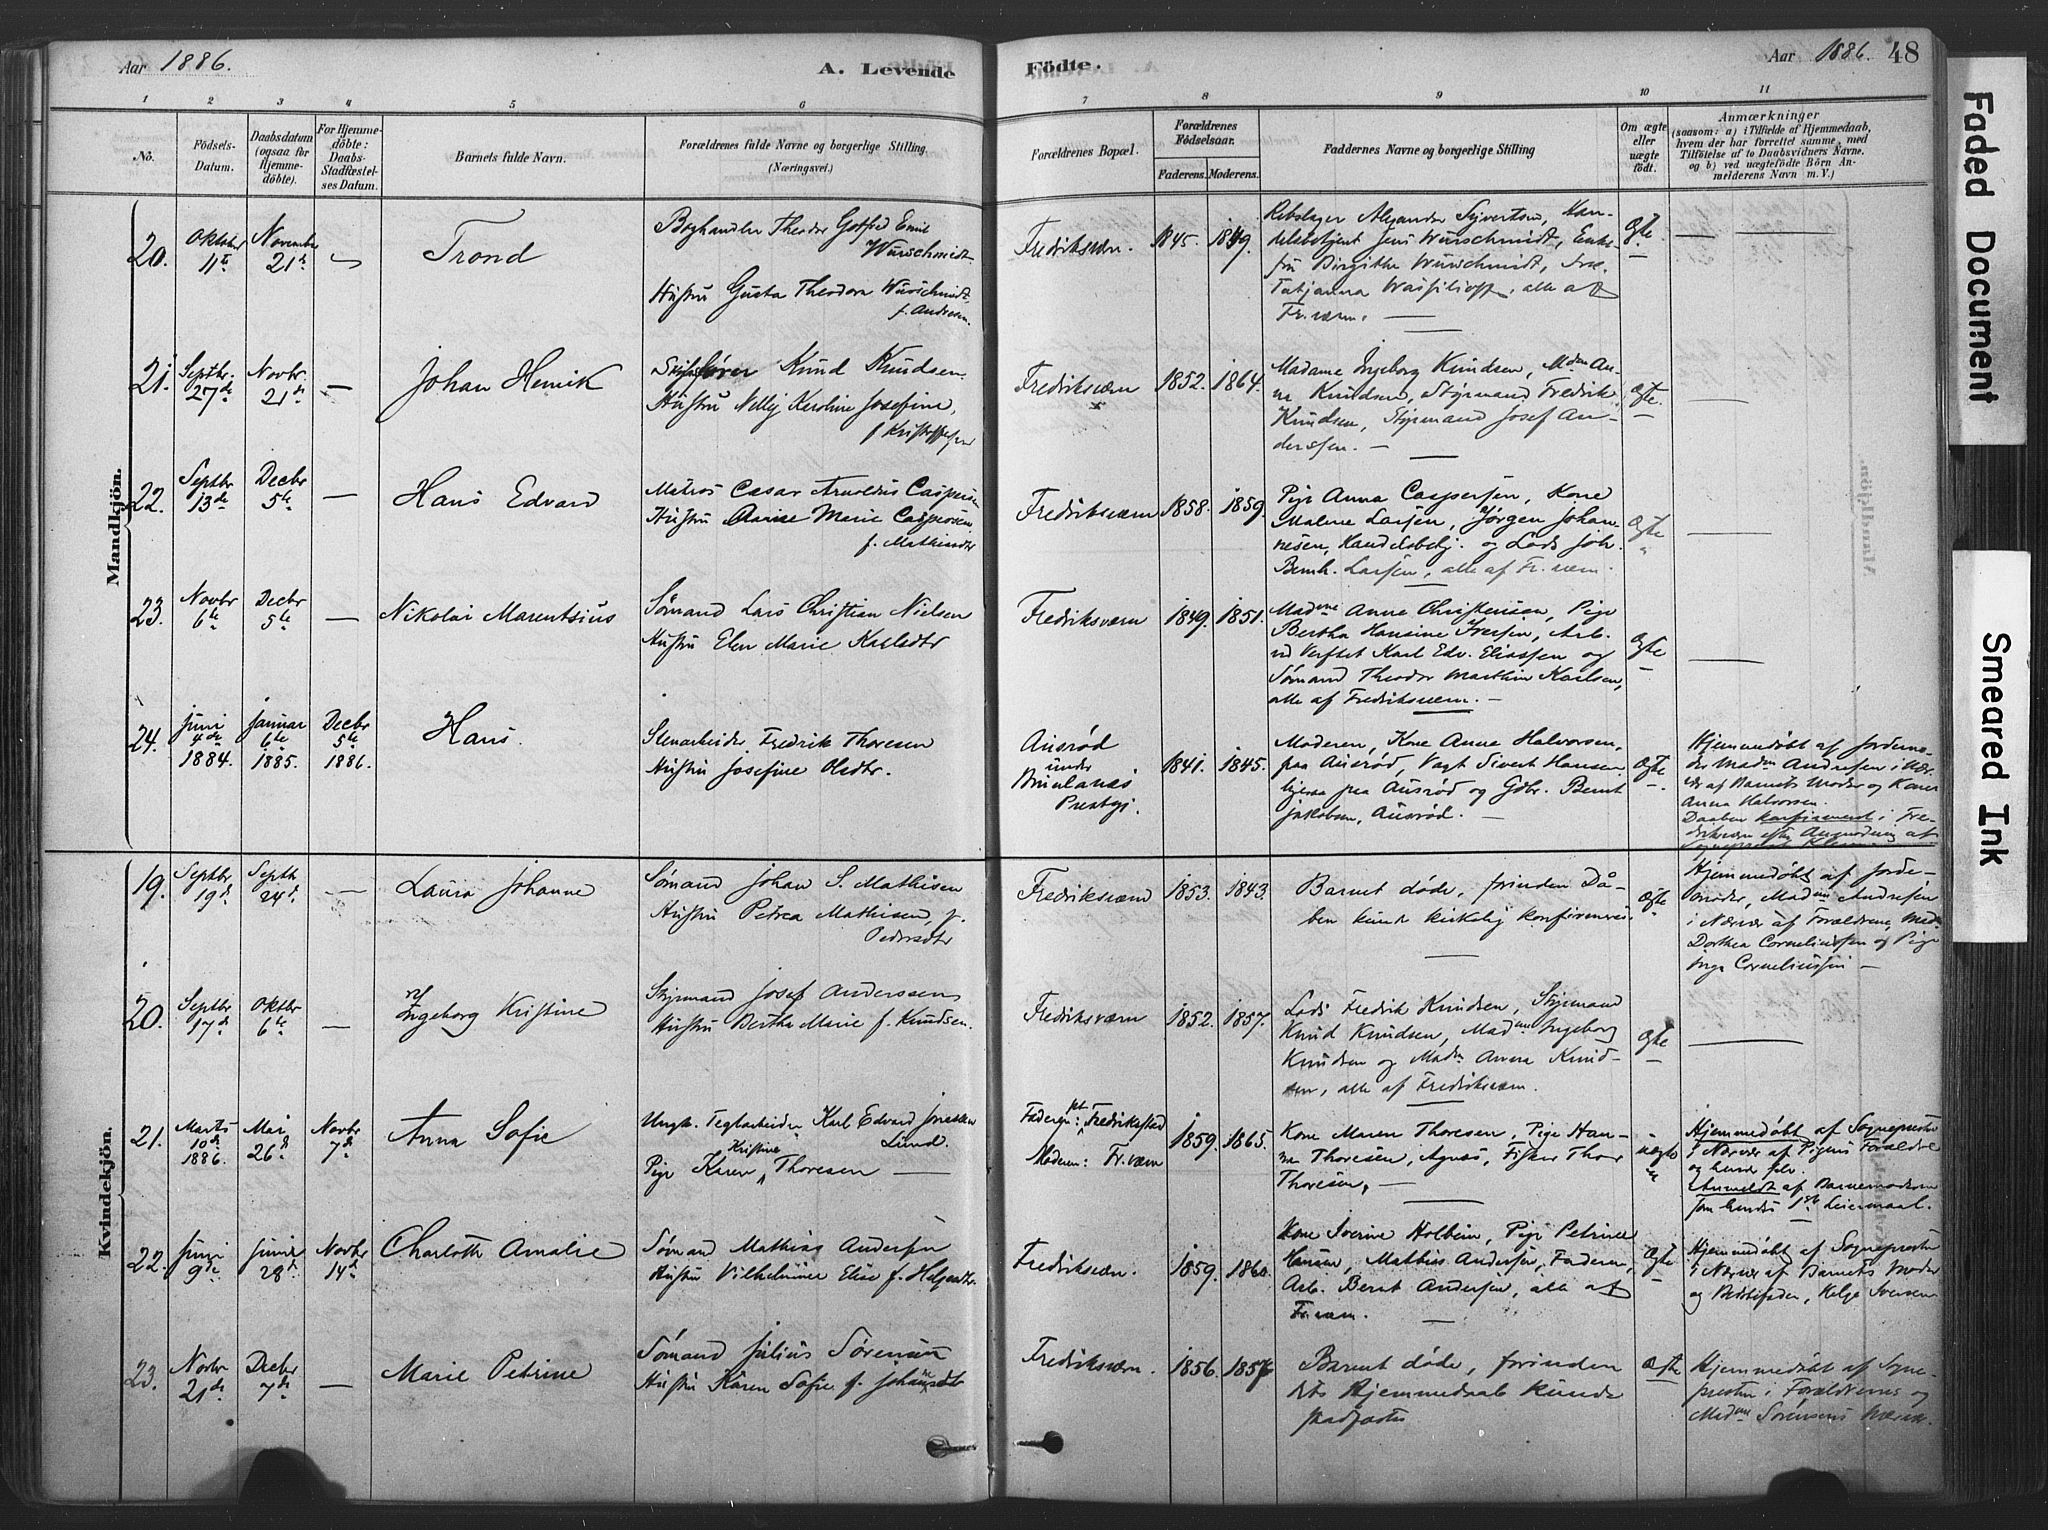 Aar 1886.
A. Levende
Födte.
Aar 1886. 48
1 2 3 4 5 6 7 8 9 10 11
No.
Födsels-
Datum.
Daabsdatum
(ogsaa for
Hjemme-
döbte).
For Hjemme-
döbte:
Daabs-
Stadfæstel-
ses Datum.
Barnets fulde Navn.
Forældrenes fulde Navne og borgerlige Stilling
(Næringsvei.)
Forældrenes Bopæl.
Forældrenes
Födselsaar.
Faderens. Moderens.
Faddernes Navne og borgerlige Stilling
Om ægte
eller
uægte
födt.
Anmærkninger
(saasom: a) i Tilfælde af Hjemmedaab,
hvem der har forrettet samme, med
Tilföielse af to Daabsvidners Navne.
og b) ved uægtefödte Börn An-
melderens Navn m. V.)
Mandkjön.
20.
Oktober
11te
November
21de
Trond
Boghandler Theodor Gotfred Emil
Würschmidt.
Hustru Gusta Theodora Würschmidt
f. Andresen.
Fredriksværn.
1845. 1849.
Rebslager Alexander Syvertsen, Han-
delsbetjent Jens Würschmidt, Enke-
fru Birgitte Würschmidt, Frk.
Tatjanna Wassilioff, alle af
Fr.værn.
Ægte
21.
Septbr.
27de
Novbr.
21de
Johan Henrik
Skibsfører Knud Knudsen
Hustru Nelly Karoline Josefine,
f Kristoffersen
Fredriksværn
1852. 1864.
Madame Ingeborg Knudsen, Mdm An-
na Knudsen, Styrmand Fredrik
Knudsen, Styrmand Josef An-
derssen.
Ægte.
22.
Septbr
13de
Decbr
5te
Hans Edvard
Matros Cæsar Arnoldus Caspersen
Hustru Anine Marie Caspersen
f. Mathisdtr
Fredriksværn
1858. 1859.
Pige Anna Caspersen, Kone
Malene Larsen, Jørgen Johan-
nesen, Handelsbetj. og Lods Joh.
Bernh. Larsen, alle af Fr.værn.
Ægte
23.
Novbr
6te
Decbr
5te
Nikolai Marentsius
Sømand Lars Christian Nielsen
Hustru Elen Marie Karlsdtr
Fredriksværn
1849. 1851.
Madme Anna Christensen, Pige
Bertha Hansine Iversen, Arb.
ved Verftet Karl Edv. Eliassen og
Sømand Theodor Martin Karlsen,
alle af Fredriksværn.
Ægte
24.
Juni
4de
1884.
Januar
6te
1885.
Decbr
5te
1886.
Hans.
Stenarbeider Fredrik Thoresen
Hustru Josefine Olsdtr.
Ausrød
under
Brunlanæs
Prestegj.
1841. 1845.
Moderen, Kone Anna Halvorsen,
paa Ausrød, Vagt Sivert Hansen
ligesaa paa Ausrød og Gdbr. Bernt
Jakobsen, Ausrød.
Ægte
Hjemmedøbt af Jordemo-
der Madm Andresen i Nær-
vær af Barnets Moder og Kone
Anna Halvorsen.
Daaben konfirmeret i Fre-
driksværn efter Anmodning af
Sogneprest
Kvindekjön.
19.
Septbr
19de
Septb
24de
Laura Johanne
Sømand Johan S. Mathisen
Hustru Petrea Mathisen, f.
Pedersdtr
Fredriksværn
1853. 1843.
Barnet døde, forinden Då-
ben kunde kirkelig konfirmeres
Ægte
Hjemmedøbt af Jorde-
moder, Madm Andresen
i Nærvær af Forældrene, Madm
Dorthea Corneliussen og Pige
Inga Corneliussen
20.
Septbr
17de
Oktbr
6te
Ingeborg Kristine
Styrmand Josef Anderssen
Hustru Bertha Marie f. Knudsen.
Fredriksværn
1852. 1857.
Lods Fredrik Knudsen, Styrmand
Knud Knudsen, Madm Ingeborg
Knudsen og Madm Anna Knud-
sen, alle af Fredriksværn.
Ægte
21.
Marts
10de
1886.
Mai
26de
Novbr
7de
Anna Sofie
Ungk. Teglarbeider Karl Edvard
Lund.
Kristine
Pige Karen Thoresen
Faderen: pt Fredriksstad
Moderen: Fr.værn
1859. 1865.
Kone Maren Thoresen, Pige Han-
na Thoresen, Agnes, Fisker Thor
Thoresen,
uægte
Hjemmedøbt af Sognepresten
i Nærvær af Pigens Forældre
og hende selv.
Anmeldt af Barnemoderen
som hendes 1ste Leiermaal.
22.
Juni
9de
Juni
28de
Novbr
14de
Charlotte Amalie
Sømand Mathias Andersen
Hustru Vilhelmine Elise f. Helgesdtr.
Fredriksværn.
1859. 1860.
Kone Iverine Holbein, Pige Petrine
Hansen, Mathias Andersen, Faderen,
Arb. Bernt Andersen, alle af
Fr.værn.
Ægte
Hjemmedøbt af Sognepresten
i Nærvær af Barnets Moder
og Bedstefader, Helge Iversen
23.
Novbr
21de
Decbr
7de
Marie Petrine
Sømand Julius Sørensen
Hustru Karen Sofie f. Johannesdtr
Fredriksværn.
1856. 1857
Barnet døde, forinden
dets Hjemmedaab kunde
stadfæstes
Ægte
Hjemmedøbt af Sogne-
presten i Forældrenes og
Madm Sørensens Nærvær.
Faded Document
Smeared Ink